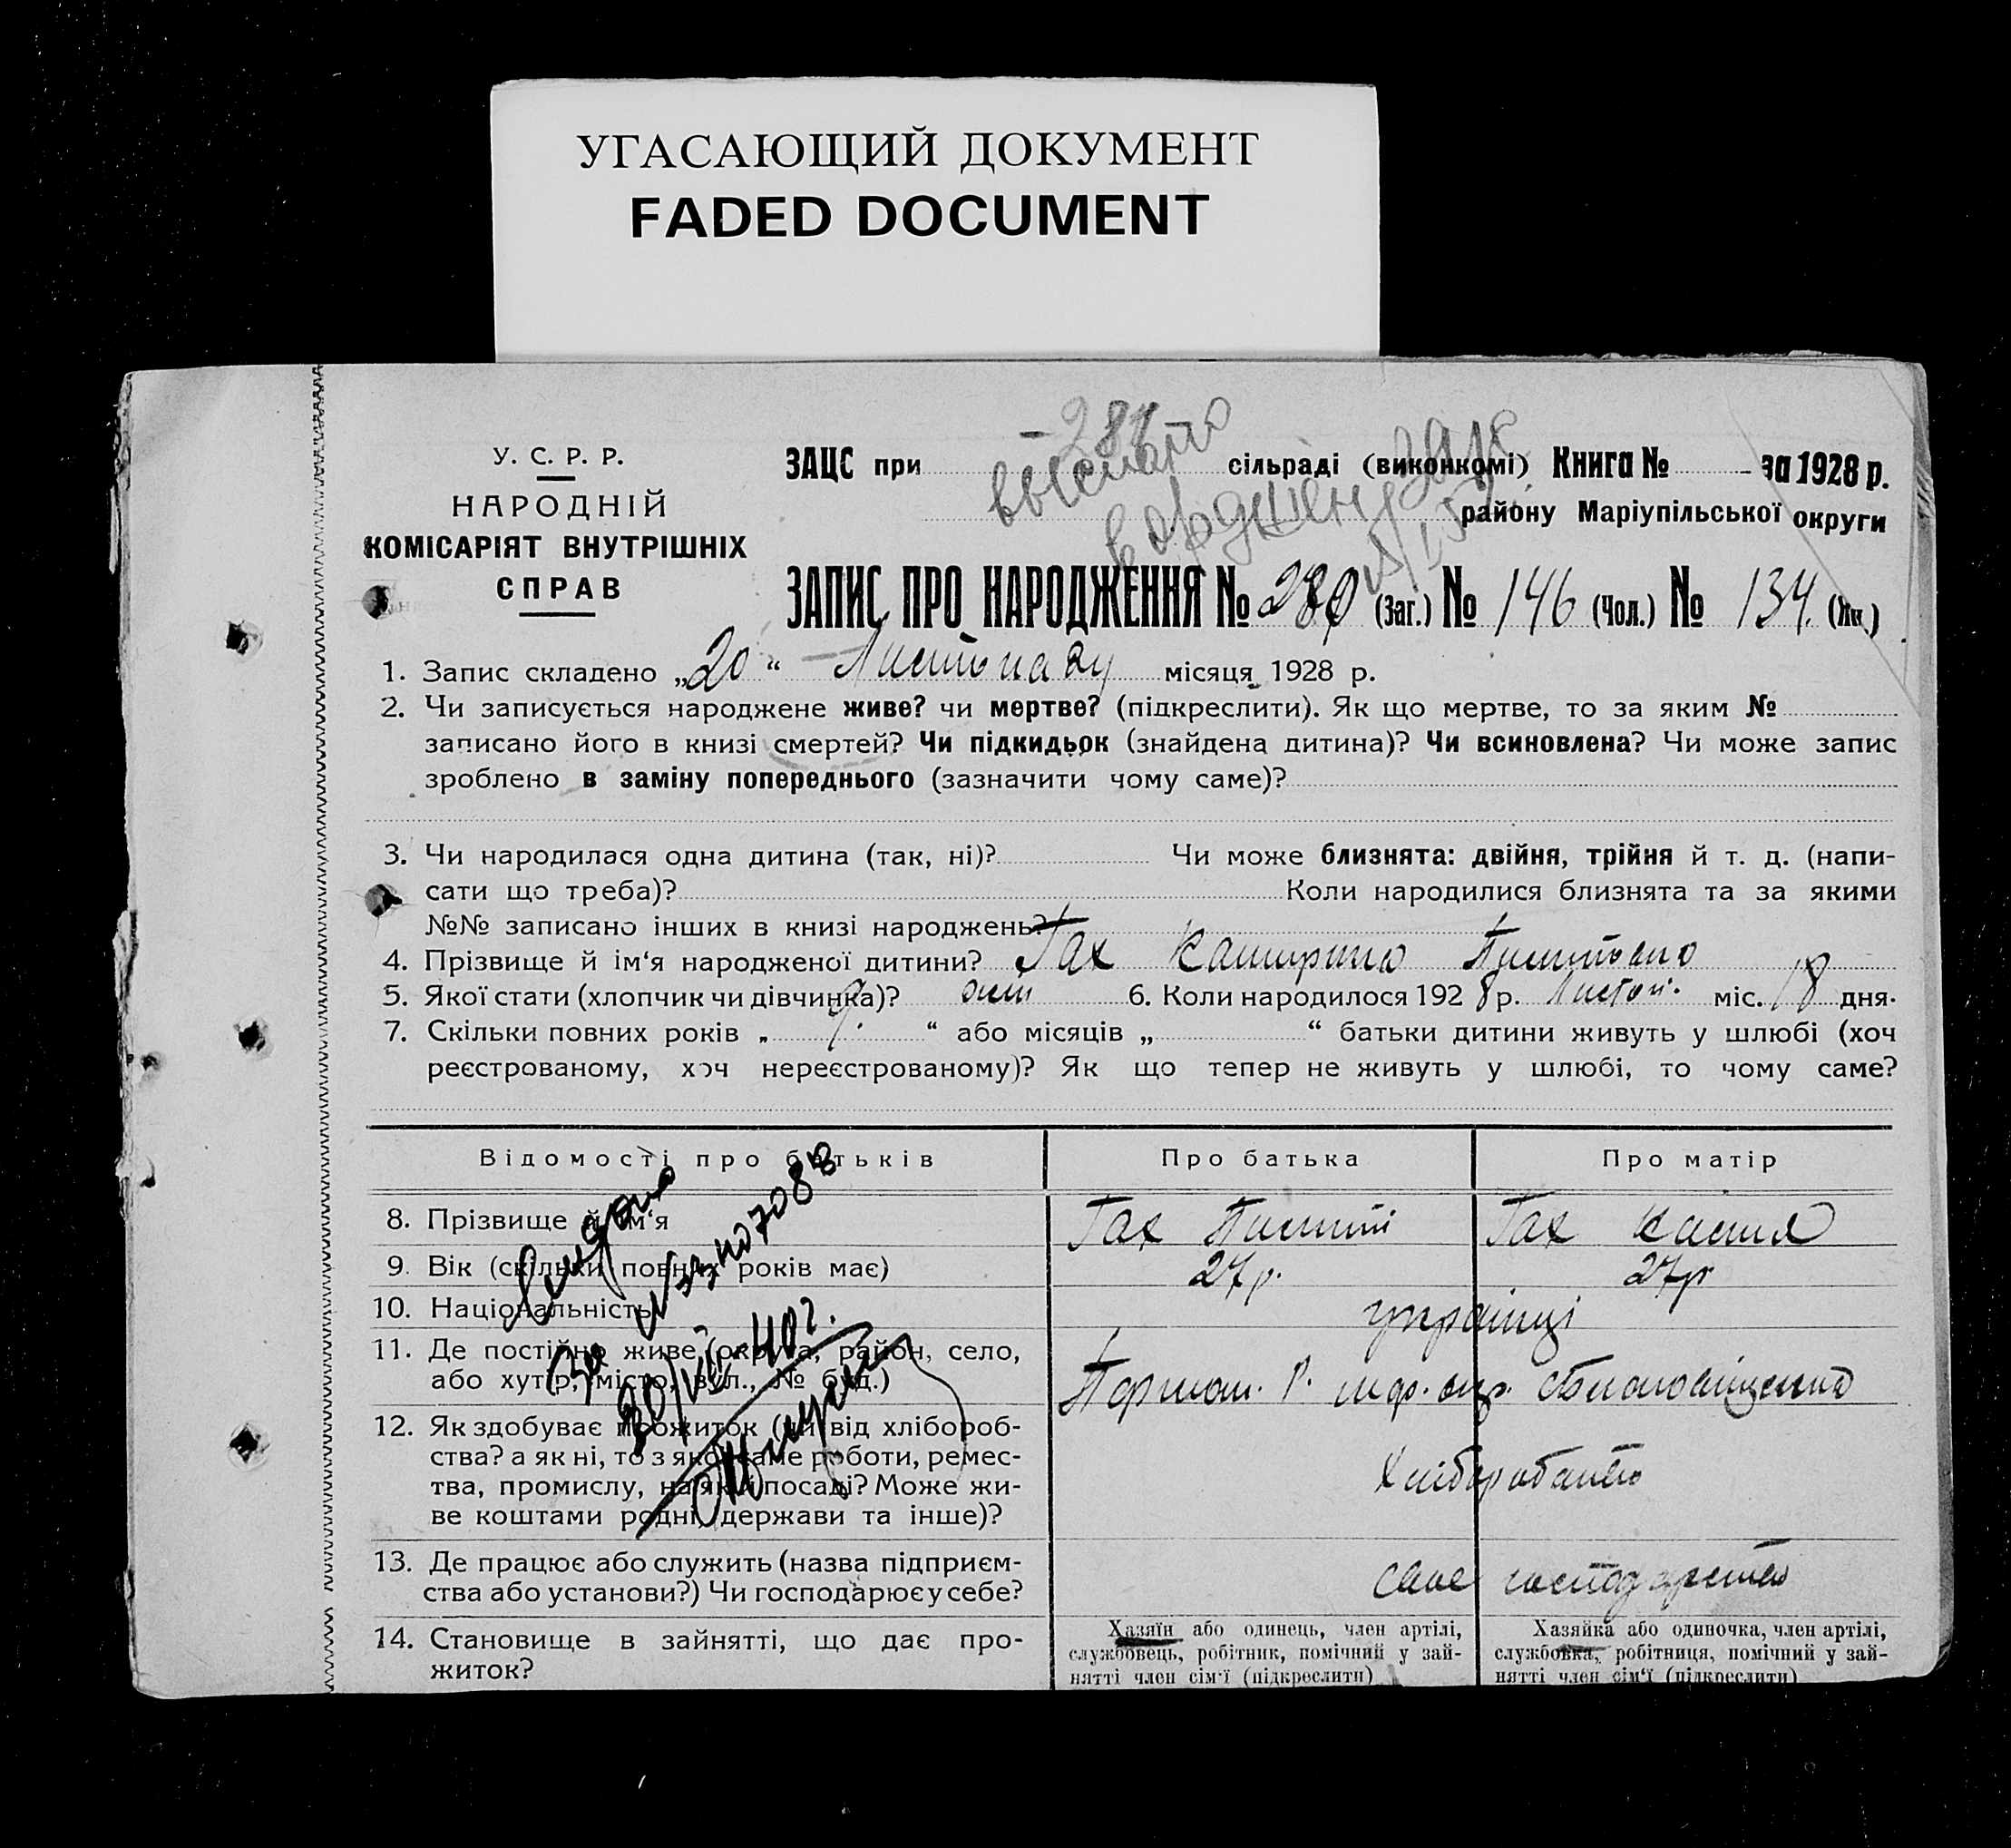 УГАСАЮЩИЙ ДОКУМЕНТ
FADED DOCUMENT
У. С. Р. Р.
НАРОДНІЙ
КОМІСАРІЯТ ВНУТРІШНІХ
СПРАВ
281
выслано
ЗАЦС при сільраді (виконкомі) Книга № за 1928 р.
району Маріупільської округи
ЗАПИС ПРО НАРОДЖЕННЯ № 280 (Заг.) № 146 (Чол.) № 134. (Жн.)
1. Запис складено „20“ Листопаду місяця 1928 р.
2. Чи записується народжене живе? чи мертве? (підкреслити). Як що мертве, то за яким №
записано його в книзі смертей? Чи підкидьок (знайдена дитина)? Чи всиновлена? Чи може запис
зроблено в заміну попереднього (зазначити чому саме)?
3. Чи народилася одна дитина (так, ні)? Чи може близнята: двійня, трійня й т. д. (напи-
сати що треба)? Коли народилися близнята та за якими
№№ записано інших в книзі народжень?
4. Прізвище й ім‘я народженої дитини? Гах
5. Якої стати (хлопчик чи дівчинка)? 6. Коли народилося 1928 р. Листоп. міс. 18 дня.
7. Скільки повних років „ 9. “ або місяців „ “ батьки дитини живуть у шлюбі (хоч
реєстрованому, хоч нереєстрованому)? Як що тепер не живуть у шлюбі, то чому саме?
Відомості про батьків Про батька Про матір
8. Прізвище й ім‘я Гах Гах
9. Вік (скільки повних років має) 27 р. 27 р
10. Національність українці
11. Де постійно живе (округа, район, село,
або хутір, місто, вул., № буд.)
12. Як здобуває прожиток (чи від хлібороб-
ства? а як ні, то з якої саме роботи, ремес-
тва, промислу, на якій посаді? Може жи-
ве коштами родні, держави та інше)?
Хліборобство
13. Де працює або служить (назва підприєм-
ства або установи?) Чи господарює у себе?
своє господарство
14. Становище в зайнятті, що дає про-
житок?
Хазяїн або одинець, член артілі,
службовець, робітник, помічний у зай-
нятті член сім‘ї (підкреслити)
Хазяйка або одиночка, член артілі,
службовка, робітниця, помічний у зай-
нятті член сім‘ї (підкреслити)